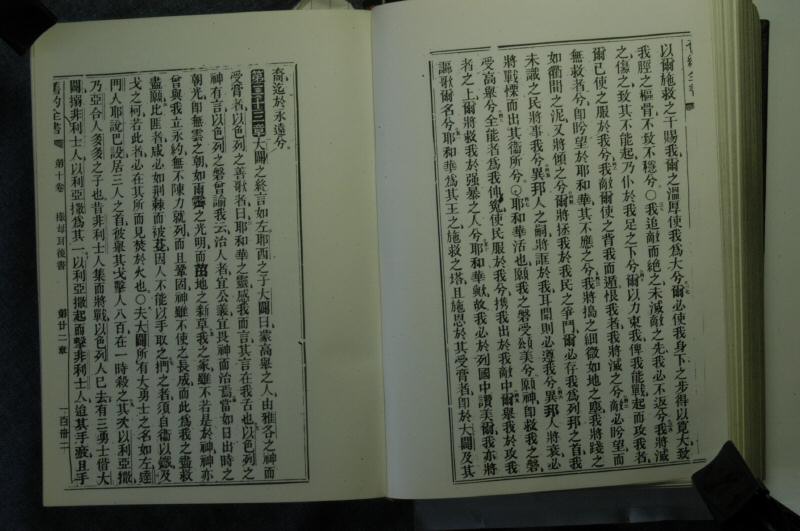 以爾施救之干賜我爾之溫厚使我為大兮爾必使我身下之步得以寬大致
我脛之樞骨不致不穩兮○我追敵而絕之未滅敵之先我必不返兮我將滅
之傷之致其不能起乃仆於我足之下兮爾以力束我俾我能戰起而攻我者
爾已使之服於我兮我敵爾使之背我而遁恨我者我將滅之兮敵必盼望而
無救者兮即盼望於耶和華其不應之兮我將搗之細微如地之塵我將踐之
如衢間之泥又將傾之兮爾將拯我於我民之爭鬥爾必存我為列邦之首我
未識之民將事我兮異邦人之嗣將誑於我耳聞則必遵我兮異邦人將衰必
將戰慄而出其衞所兮○耶和華活也願我之磐受頌美兮願神即救我之磐
受高舉兮全能者為我伸冤使民服於我兮攜我出於我敵中爾舉我於攻我
者之上爾將救我於強暴之人兮耶和華歟故我必於列國中讚美爾我亦將
謳歌爾名兮耶和華為其王之施救之塔且施恩於其受膏者即於大闢及其
裔迄於永遠兮
第二十三章大闢之終言如左耶西之子大闢曰蒙高舉之人由雅各之神而
受膏者以色列之善歌者曰耶和華之靈感我而言其言在我舌也以色列之
神有言以色列之磐曾諭我云治人者宜公義宜畏神而治焉當如日出時之
朝光即無雲之朝如雨霽之光明而茁地之新草我之家雖不若是於神神亦
曾與我立永約無不陳力就列而且鞏固神雖不使之長成而此為我之盡救
盡願比匪者咸必如荊棘而被 因人不能以手取之捫之者須自衞以鐵及
戈之柯若此者必在其所而見焚於火也○夫大闢所有大勇士之名如左達
門人耶說巴設居三人之首彼舉其戈擊人八百在一時殺之其次以利亞撒
乃亞合人多多之子也昔非利士人集而將戰以色列人已去有三勇士偕大
闢搦非利士人以利亞撒為其一以利亞撒起而擊非利士人迨其手 且手
舊約全書
第十卷
撒母耳後書
第廿二章
一百卌二